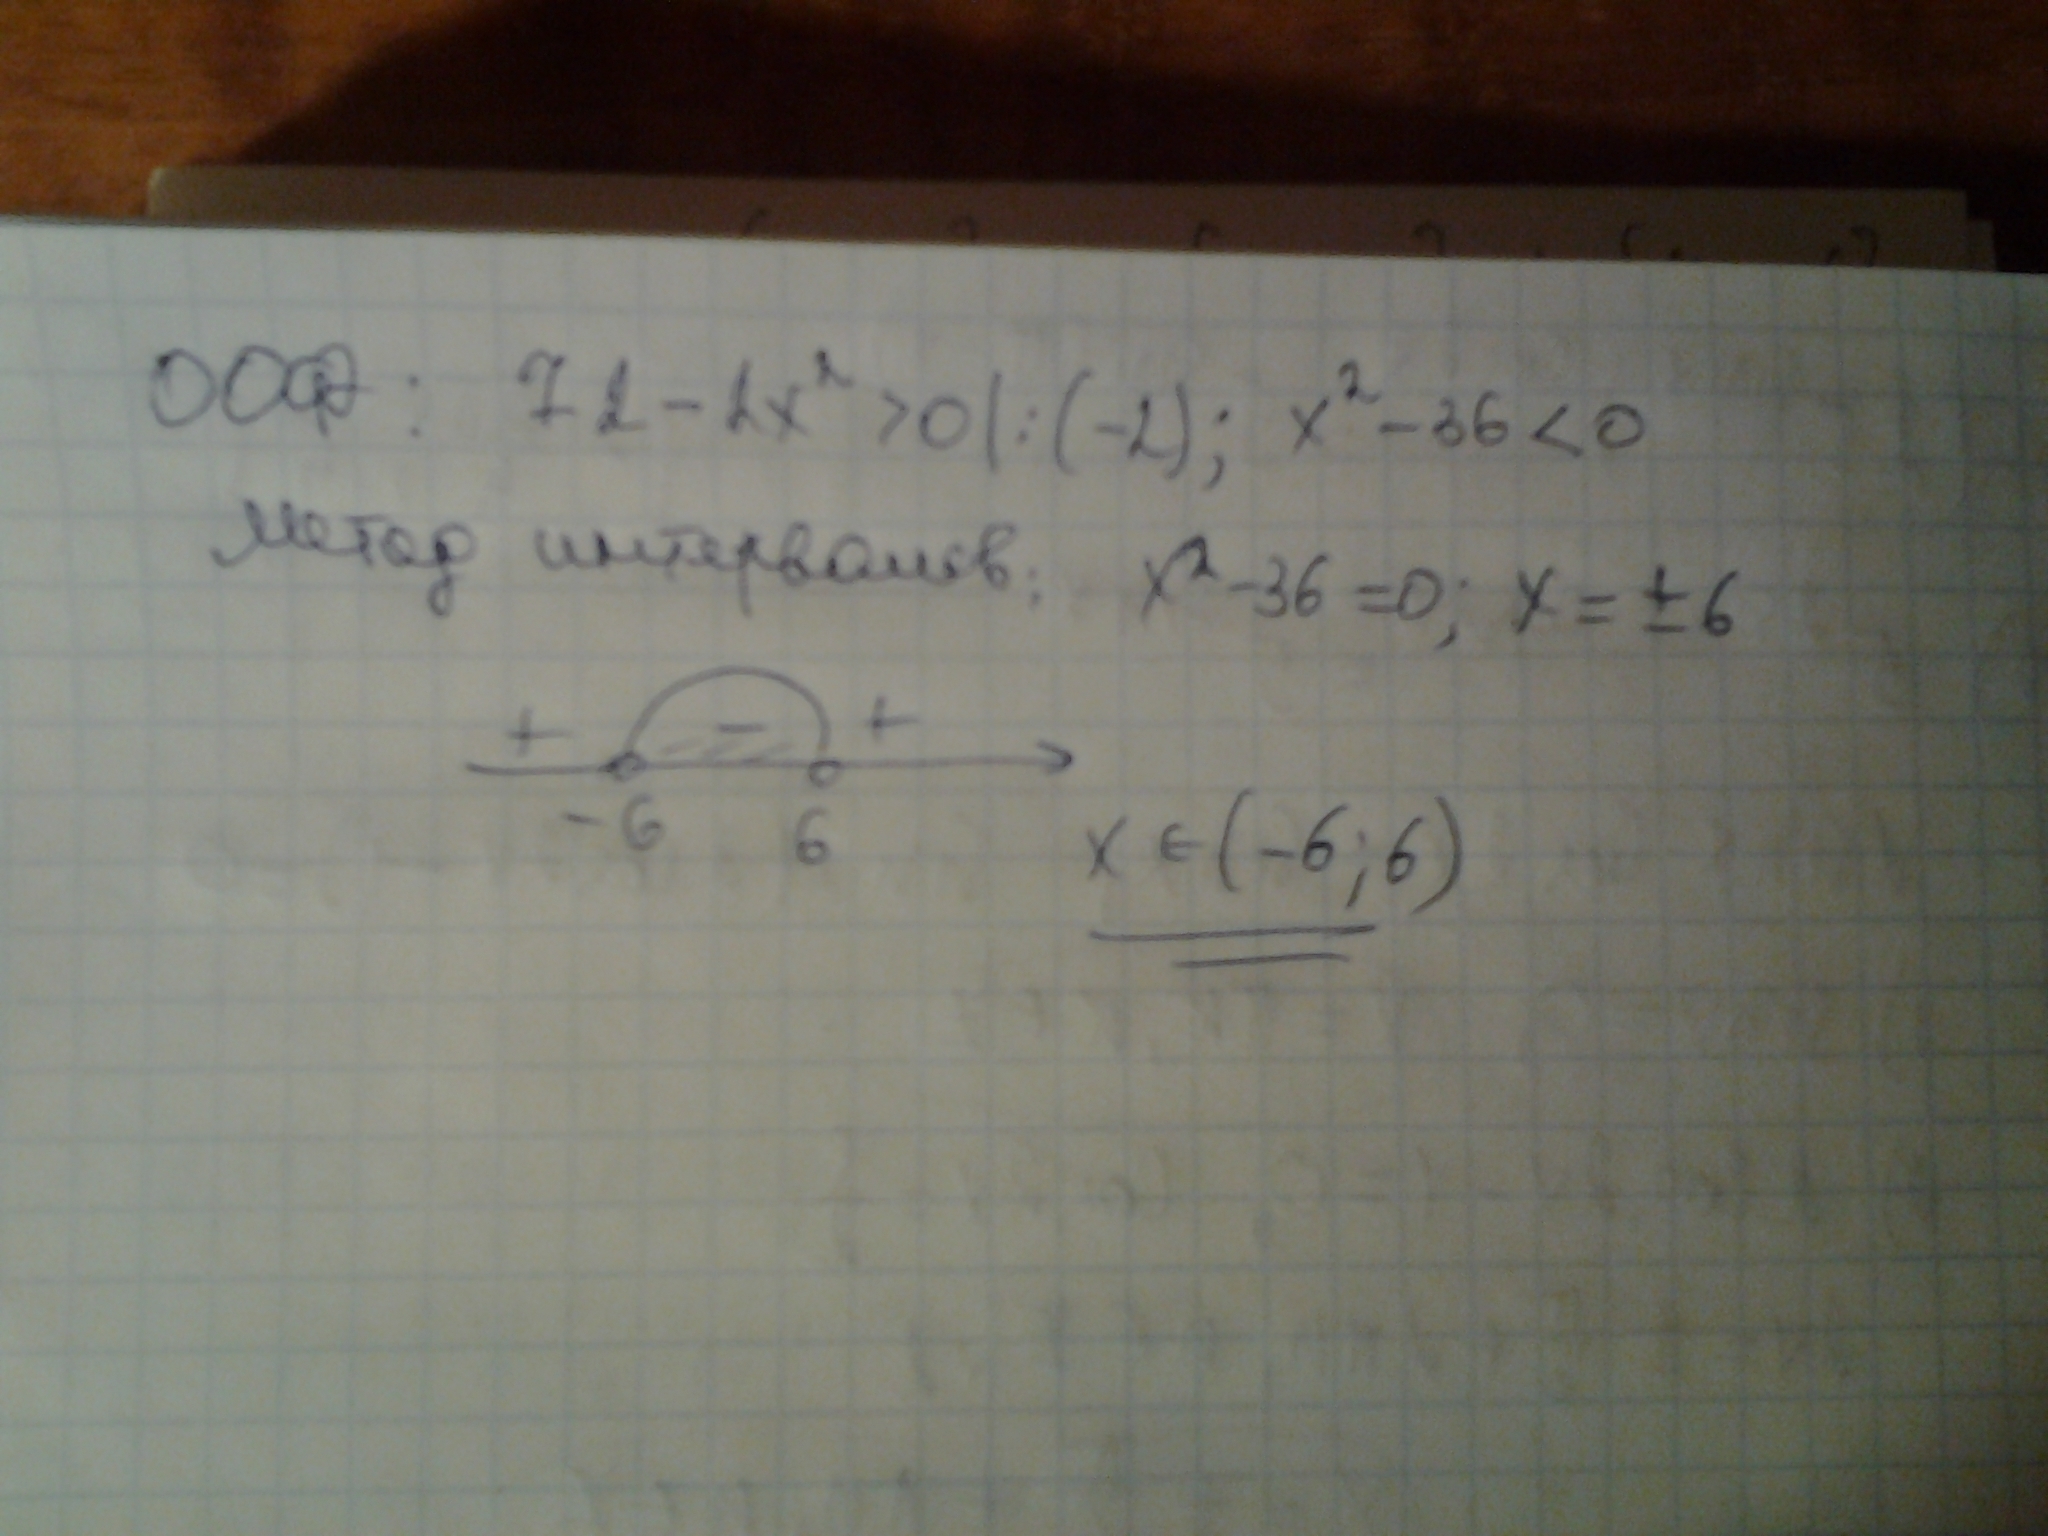 ООФ: 72 - 2x² > 0 | : (-2); x² - 36 < 0
Метод интервалов: x² - 36 = 0; x = ± 6
+ - +
-6 6
x ∈ (-6; 6)